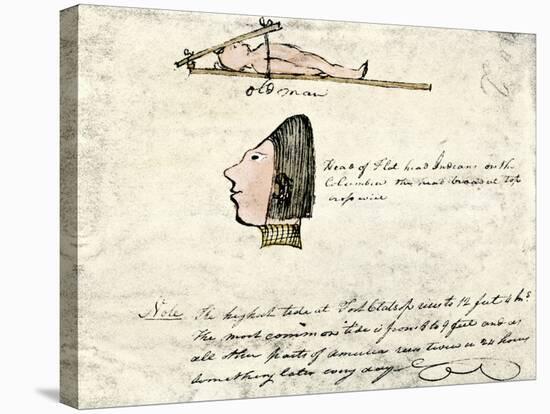 old man
Head of Flat head Indians on the
Columbia the head broad at top
crosswise
Note The highest tide at Fort Clatsop rises to 12 feet 4 Ins
The most common tide is from 8 to 9 feet and as
all other parts of america rises twice in 24 hours
something later every day